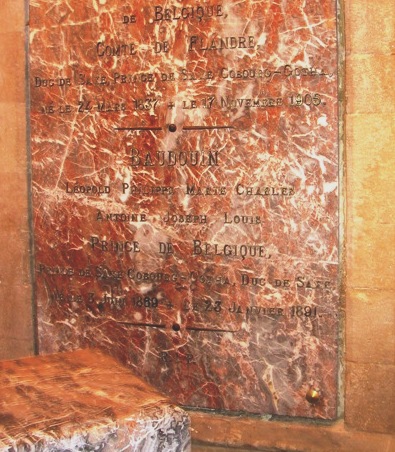 DE BELGIQUE,
COMTE DE FLANDRE,
DUC DE SAXE, PRINCE DE SAXE COBOURG-GOTHA
NÉ LE 24 MARS 1837 + LE 17 NOVEMBRE 1905.
BAUDOUIN
LÉOPOLD PHILIPPE MARIE CHARLES
ANTOINE JOSEPH LOUIS
PRINCE DE BELGIQUE,
PRINCE DE SAXE COBOURG-GOTHA, DUC DE SAXE
NÉ LE 3 JUIN 1869 + LE 23 JANVIER 1891.